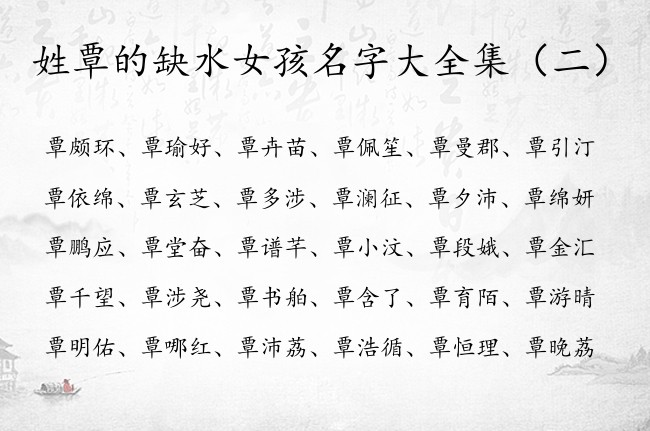 姓覃的缺水女孩名字大全集（二）
覃颇环、覃瑜好、覃卉苗、覃佩笙、覃曼郡、覃引汀
覃依绵、覃玄芝、覃多涉、覃澜征、覃夕沛、覃绵妍
覃鹏应、覃堂奋、覃谱芊、覃小汶、覃段娥、覃金汇
覃千望、覃涉尧、覃书舶、覃含了、覃育陌、覃游晴
覃明佑、覃哪红、覃沛荔、覃浩循、覃恒理、覃晚荔